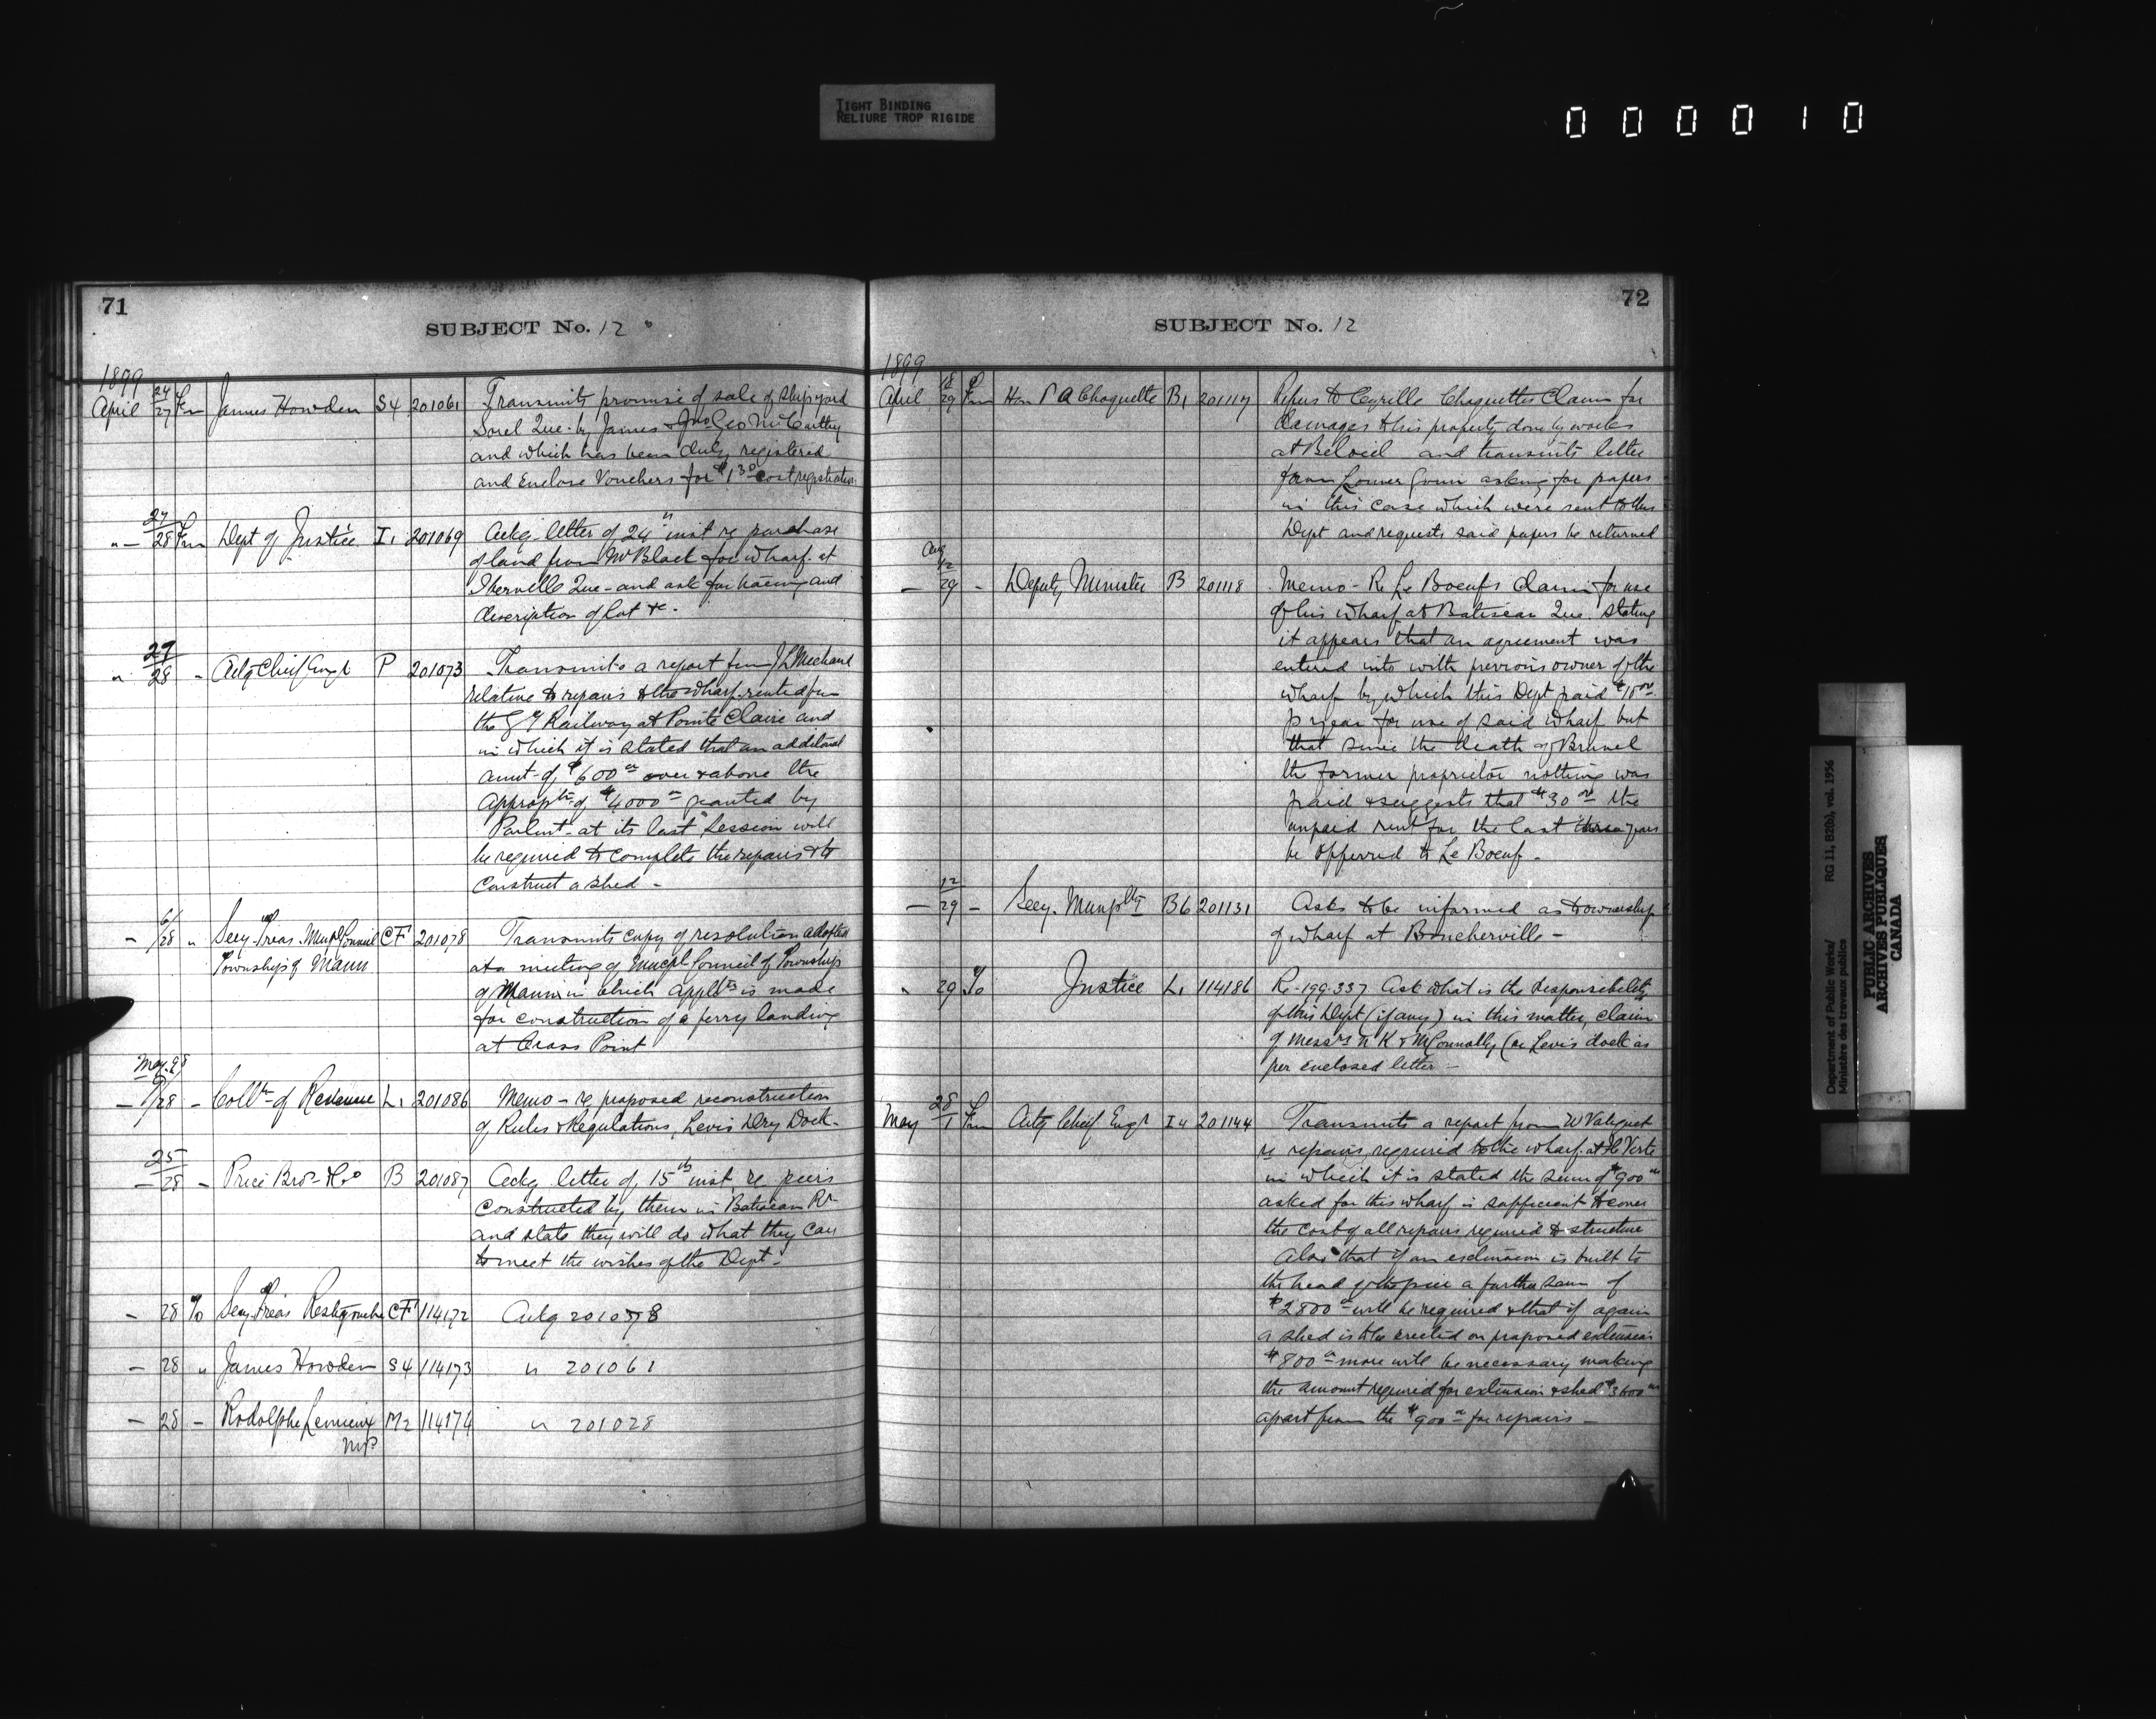 TIGHT BINDING
RELIURE TROP RIGIDE
000010
71
SUBJECT No. 12
1899
April 24/27 Fm James Howden S4 201061 Transmits promise of sale of shipyard
Sorel Que. by James & Jno Geo McCarthy
and which has been duly registered
and Enclose Vouchers for $1.30 cost registration
" — 27/28 Fm Dept of Justice I1 201069 Ackg. letter of 24" inst re purchase
of land from Mr Black for wharf at
Iberville Que - and ask for naming and
description of lot &c.
" 27/28 " Actg Chief Engr P 201073 Transmits a report from J L Michaud
relative to repairs to the wharf rented from
the G T Railway at Pointe Claire and
in which it is stated that an additional
amt. of $600 00 over & above the
Approptn of $4000 00 granted by
Parlmt. at its last Session will
be required to complete the repairs & to
Construct a shed -
- 6/28 " Secy-Treas. Munpl Council CF 201078 Transmits copy of resolution adopted
Township of Mann at a meeting of Muncpl Council of Township
of Mann in which applctn is made
for construction of a ferry landing
at Cross Point
May 98
— /28 - Collr of Revenue L1 201086 Memo - re proposed reconstruction
of Rules & Regulations, Levis Dry Dock.
25
— 28 - Price Bros & Co B 201087 Ackg letter of 15th inst. re piers
constructed by them in Batiscan Rr
and state they will do what they can
to meet the wishes of the Dept.
- 28 To Secy-Treas Restigouche CF 114172 Ackg 201078
— 28 " James Howden S4 114173 " 201061
— 28 - Rodolphe Lemieux M2 114174 " 201028
MP
72
SUBJECT No. 12
1899
April 18/29 Fm Hon P A Choquette B1 201117 Refers to Cyrille Choquettes Claim for
damages to his property done by works
at Beloeil and transmits letter
from asking for papers
in this case which were sent to this
Dept and requests said papers be returned
Aug
— 12/29 - Deputy Minister B 201118 Memo - Re Le Boeufs claim for use
of his wharf at Batiscan Que. stating
it appears that an agreement was
entered into with previous owner of the
wharf by which this Dept paid $10 00
p year for use of said wharf but
that since the death of Brunel
the former proprietor nothing was
paid & suggests that $30 00 the
unpaid rent for the last three years
be offerred to Le Boeuf -
— 12/29 - Secy. Munplty B6 201131 Asks to be informed as to ownership
of wharf at Boucherville -
" 29 To Justice L1 114186 Re-199-337 Ask what is the responsibility
of this Dept (if any) in this matter, claim
of Messrs N K & M Connolly (re Levis dock as
per enclosed letter -
May 28/1 Fm Actg Chief Engr I4 201144 Transmits a report from W Valiquet
re repairs required to the wharf at Ile Verte
in which it is stated the sum of $900 00
asked for this wharf is sufficient to cover
the cost of all repairs required to structure
Also that if an extension is built to
the head of the pier a further sum of
$2800 00 will be required & that if again
a shed is to be erected on proposed extension
$800 00 more will be necessary making
the amount required for extension & shed $3600 00
apart from the $900 00 for repairs -
Department of Public Works/ RG 11, B2(b), vol. 1956
Ministère des travaux publics
PUBLIC ARCHIVES
ARCHIVES PUBLIQUES
CANADA